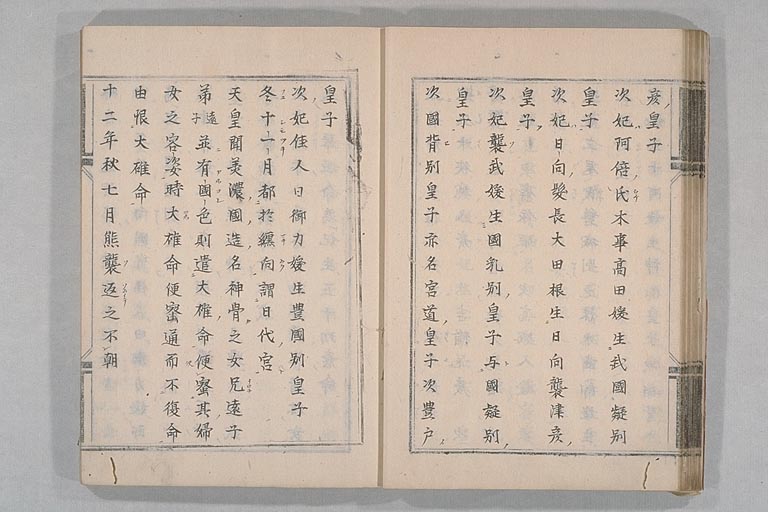 彦皇子
次妃阿倍氏木事高田媛生武國凝別
皇子
次妃日向髮長大田根生日向襲津彦
皇子
次妃襲武媛生國乳別皇子与國凝別
皇子
次國背別皇子亦名宮道皇子次豊戸
皇子
次妃佳人日御力媛生豊國別皇子
冬十一月都於纒向謂日代宮
天皇聞美濃國造名神骨之女兄遠子
弟遠子並有國色則遣大碓命使密其婦
女之容姿時大碓命便密通而不復命
由恨大碓命
十二年秋七月熊襲返之不朝